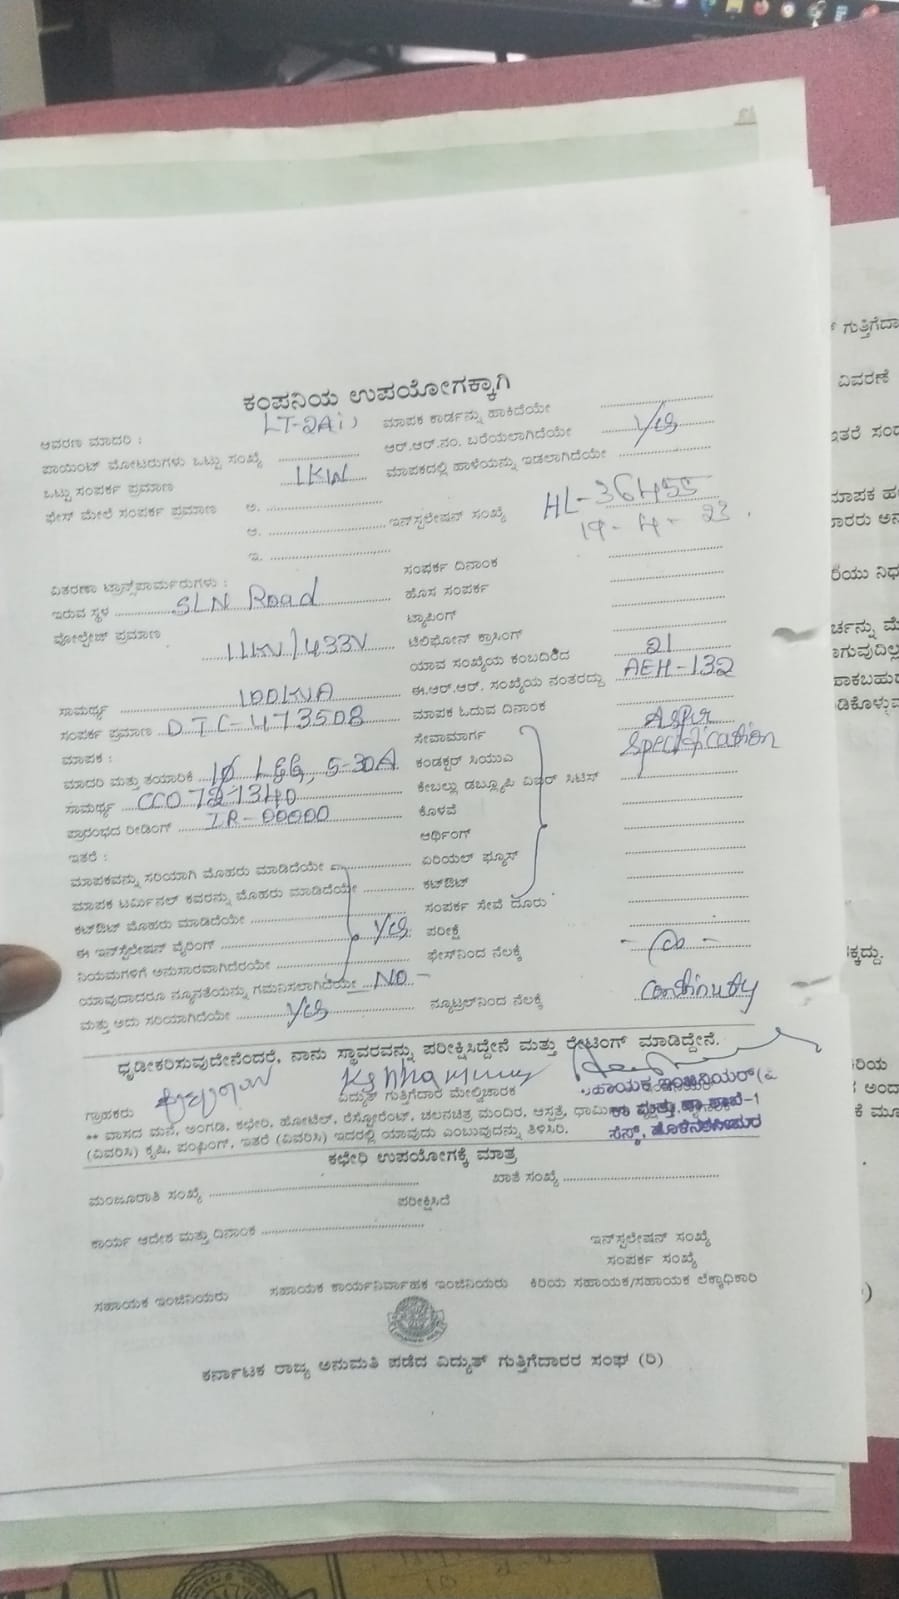 ಕಂಪನಿಯ ಉಪಯೋಗಕ್ಕಾಗಿ
ಆವರಣ ಮಾದರಿ : LT-2Ai) ಮಾಪಕ ಕಾರ್ಡನ್ನು ಹಾಕಿದೆಯೇ
ಪಾಯಿಂಟ್ ಮೋಟರುಗಳು ಒಟ್ಟು ಸಂಖ್ಯೆ ಆರ್.ಆರ್.ನಂ. ಬರೆಯಲಾಗಿದೆಯೇ Yes
ಒಟ್ಟು ಸಂಪರ್ಕ ಪ್ರಮಾಣ 1KW ಮಾಪಕದಲ್ಲಿ ಹಾಳೆಯನ್ನು ಇಡಲಾಗಿದೆಯೇ
ಫೇಸ್ ಮೇಲೆ ಸಂಪರ್ಕ ಪ್ರಮಾಣ ಅ.
ಆ. ಇನ್‌ಸ್ಟಲೇಷನ್ ಸಂಖ್ಯೆ HL-36455
19-4-23.
ಇ. ಸಂಪರ್ಕ ದಿನಾಂಕ
ವಿತರಣಾ ಟ್ರಾನ್ಸ್‌ಫಾರ್ಮರುಗಳು : ಹೊಸ ಸಂಪರ್ಕ
ಇರುವ ಸ್ಥಳ SLN Road ಟ್ಯಾಪಿಂಗ್
ವೋಲ್ಟೇಜ್ ಪ್ರಮಾಣ 11KV/433V ಟೆಲಿಫೋನ್ ಕ್ರಾಸಿಂಗ್
ಯಾವ ಸಂಖ್ಯೆಯ ಕಂಬದಿಂದ 21
ಸಾಮರ್ಥ್ಯ 100KVA ಈ.ಆರ್.ಆರ್. ಸಂಖ್ಯೆಯ ನಂತರದ್ದು AEH-132
ಸಂಪರ್ಕ ಪ್ರಮಾಣ DTC-473508 ಮಾಪಕ ಓದುವ ದಿನಾಂಕ
ಮಾಪಕ : ಸೇವಾಮಾರ್ಗ As per
ಮಾದರಿ ಮತ್ತು ತಯಾರಿಕೆ 1Ø L&G, 5-30A ಕಂಡಕ್ಟರ್ ಸಿಯುಎ Specification
ಸಾಮರ್ಥ್ಯ CC0721340 ಕೇಬಲ್ಲು ಡಬ್ಲ್ಯೂಪಿ
ಪ್ರಾರಂಭದ ರೀಡಿಂಗ್ IR-00000 ಕೊಳವೆ
ಇತರೆ : ಆರ್ಥಿಂಗ್
ಮಾಪಕವನ್ನು ಸರಿಯಾಗಿ ಮೊಹರು ಮಾಡಿದೆಯೇ ಏರಿಯಲ್ ಫ್ಯೂಸ್
ಮಾಪಕ ಟರ್ಮಿನಲ್ ಕವರನ್ನು ಮೊಹರು ಮಾಡಿದೆಯೇ ಕಟ್‌ಔಟ್
ಕಟ್‌ಔಟ್ ಮೊಹರು ಮಾಡಿದೆಯೇ ಸಂಪರ್ಕ ಸೇವೆ ದೂರು
ಈ ಇನ್‌ಸ್ಟಲೇಷನ್ ವೈರಿಂಗ್ Yes ಪರೀಕ್ಷೆ
ನಿಯಮಗಳಿಗೆ ಅನುಸಾರವಾಗಿದೆಯೇ ಫೇಸ್‌ನಿಂದ ನೆಲಕ್ಕೆ
ಯಾವುದಾದರೂ ನ್ಯೂನತೆಯನ್ನು ಗಮನಿಸಲಾಗಿದೆಯೇ NO
ಮತ್ತು ಅದು ಸರಿಯಾಗಿದೆಯೇ Yes ನ್ಯೂಟ್ರಲ್‌ನಿಂದ ನೆಲಕ್ಕೆ continuty
ಧೃಡೀಕರಿಸುವುದೇನೆಂದರೆ, ನಾನು ಸ್ಥಾವರವನ್ನು ಪರೀಕ್ಷಿಸಿದ್ದೇನೆ ಮತ್ತು ರೇಟಿಂಗ್ ಮಾಡಿದ್ದೇನೆ.
ಗ್ರಾಹಕರು ವಿದ್ಯುತ್ ಗುತ್ತಿಗೆದಾರ ಮೇಲ್ವಿಚಾರಕ ಸಹಾಯಕ ಇಂಜಿನಿಯರ್(ವಿ
** ವಾಸದ ಮನೆ, ಅಂಗಡಿ, ಕಛೇರಿ, ಹೋಟೆಲ್, ರೆಸ್ಟೋರೆಂಟ್, ಚಲನಚಿತ್ರ ಮಂದಿರ, ಆಸ್ಪತ್ರೆ, ಕಾ ಮತ್ತು ಪಾ ಶಾಖೆ-1
(ವಿವರಿಸಿ) ಕೃಷಿ, ಪಂಪಿಂಗ್, ಇತರೆ (ವಿವರಿಸಿ) ಇದರಲ್ಲಿ ಯಾವುದು ಎಂಬುವುದನ್ನು ತಿಳಿಸಿರಿ. ಸೆಸ್ಕ್, ಹೊಳೆನರಸೀಪುರ
ಕಛೇರಿ ಉಪಯೋಗಕ್ಕೆ ಮಾತ್ರ
ಮಂಜೂರಾತಿ ಸಂಖ್ಯೆ ಖಾತೆ ಸಂಖ್ಯೆ
ಪರೀಕ್ಷಿಸಿದೆ
ಕಾರ್ಯ ಆದೇಶ ಮತ್ತು ದಿನಾಂಕ
ಇನ್‌ಸ್ಟಲೇಷನ್ ಸಂಖ್ಯೆ
ಸಂಪರ್ಕ ಸಂಖ್ಯೆ
ಸಹಾಯಕ ಇಂಜಿನಿಯರು ಸಹಾಯಕ ಕಾರ್ಯನಿರ್ವಾಹಕ ಇಂಜಿನಿಯರು ಕಿರಿಯ ಸಹಾಯಕ/ಸಹಾಯಕ ಲೆಕ್ಕಾಧಿಕಾರಿ
ಕರ್ನಾಟಕ ರಾಜ್ಯ ಅನುಮತಿ ಪಡೆದ ವಿದ್ಯುತ್ ಗುತ್ತಿಗೆದಾರರ ಸಂಘ (ರಿ)